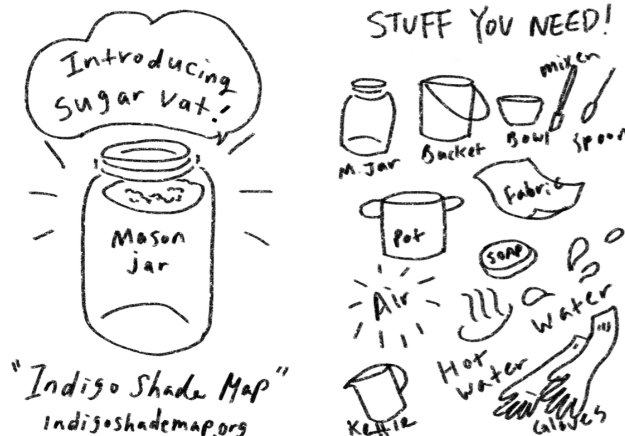 Introducing
Sugar Vat!
Mason
jar
"Indigo Shade Map"
indigoshademap.org
STUFF YOU NEED!
mixer
M. Jar
Bucket
Bowl
Spoon
Fabric
Pot
SOAP
Air
Water
Hot
Water
Kettle
Gloves